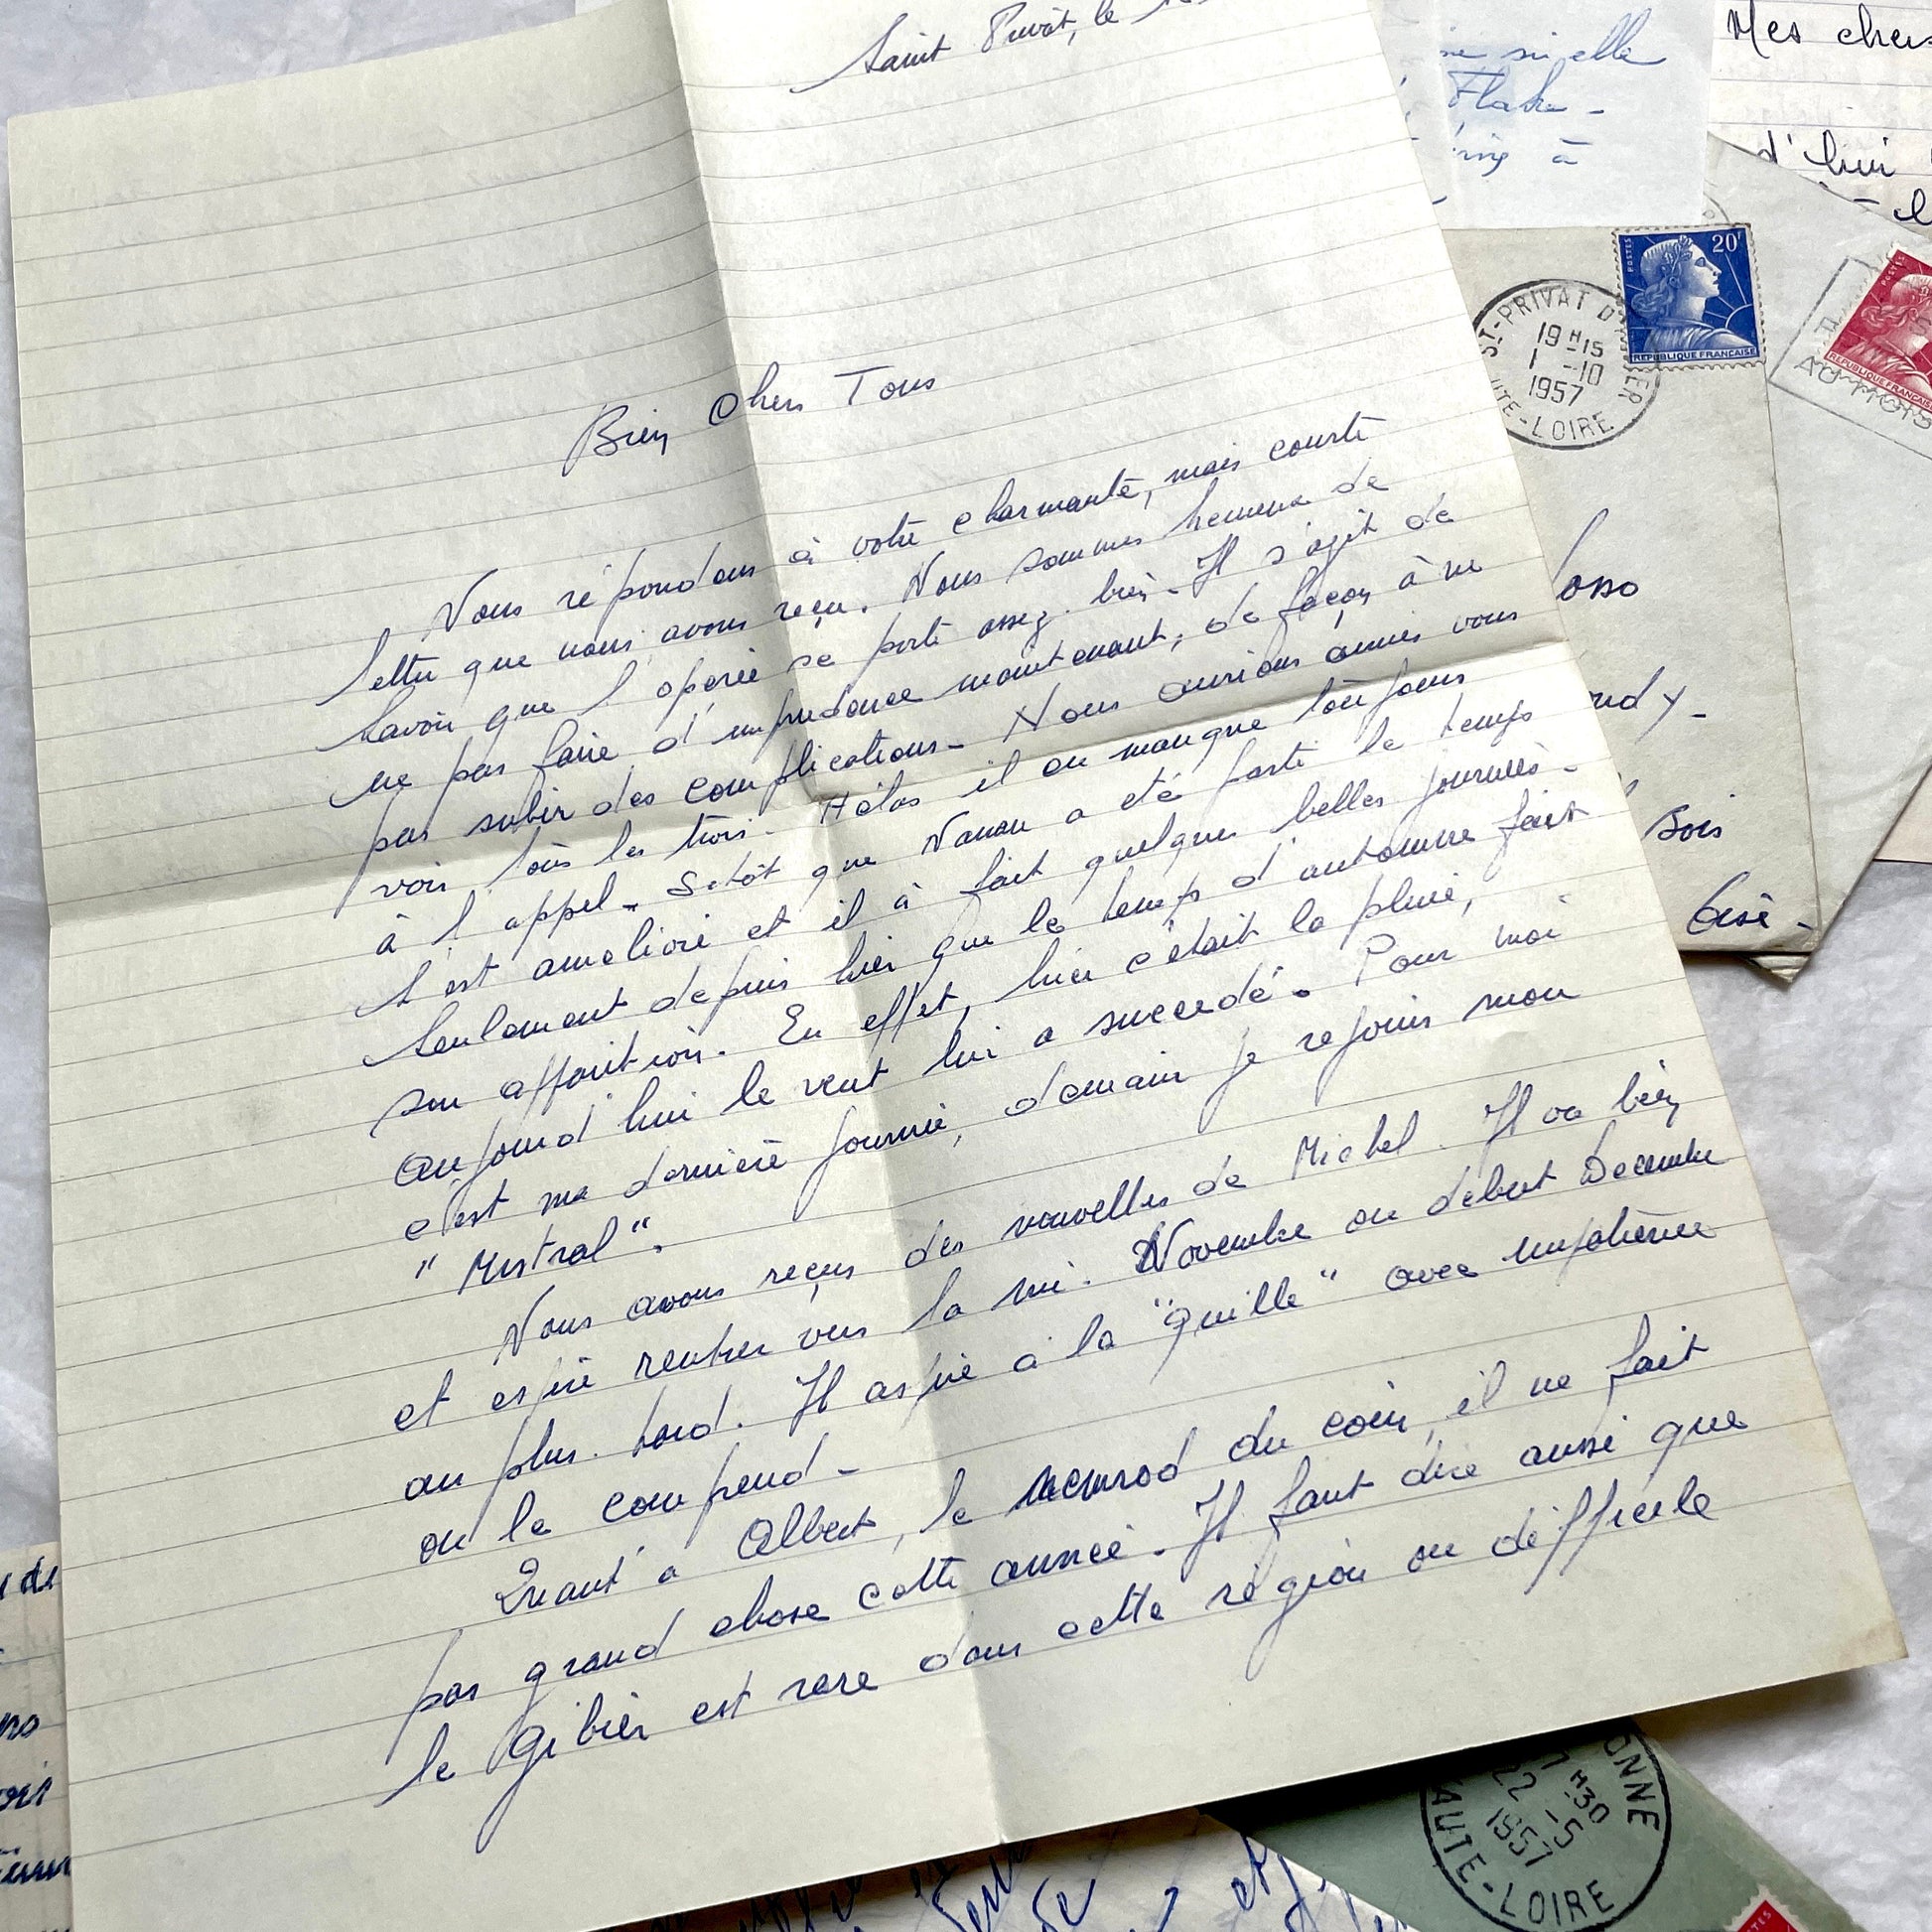 Saint Privat, le
Bien Chers Tous
Nous répondons à votre charmante, mais courte
lettre que nous avons reçu. Nous sommes heureux de
savoir que l'opérée se porte assez bien - Il s'agit de
ne pas faire d'imprudence maintenant, de façon à ne
pas subir des complications - Nous aurions aimés vous
voir tous les trois - Hélas il en manque toujours
à l'appel - Sitôt que Nanou a été parti le temps
s'est amélioré et il à fait quelques belles journées -
Seulement depuis hier que le temps d'automne fait
son apparition. En effet, hier c'était la pluie,
aujourd'hui le vent lui a succédé. Pour moi
c'est ma dernière journée, demain je rejoins mon
"Mistral".
Nous avons reçus des nouvelles de Michel. Il va bien
et espère rentrer vers la mi-Novembre ou début Decembre
au plus tard. Il aspire à la "quille" avec impatience
on le comprend -
Quant à Albert, le nemrod du coin, il ne fait
pas grand chose cette année - Il faut dire aussi que
le gibier est rare dans cette région ou difficile
si elle
à
Mes chers
d'hui
20F
POSTES
REPUBLIQUE FRANCAISE
ST-PRIVAT D'
IER
19H15
1-10
1957
UTE-LOIRE
POSTES
REPUBLIQUE FRANCAISE
osso
udy -
sois
oise -
de
ONNE
H30
22-5
1957
AUTE-LOIRE
POSTES